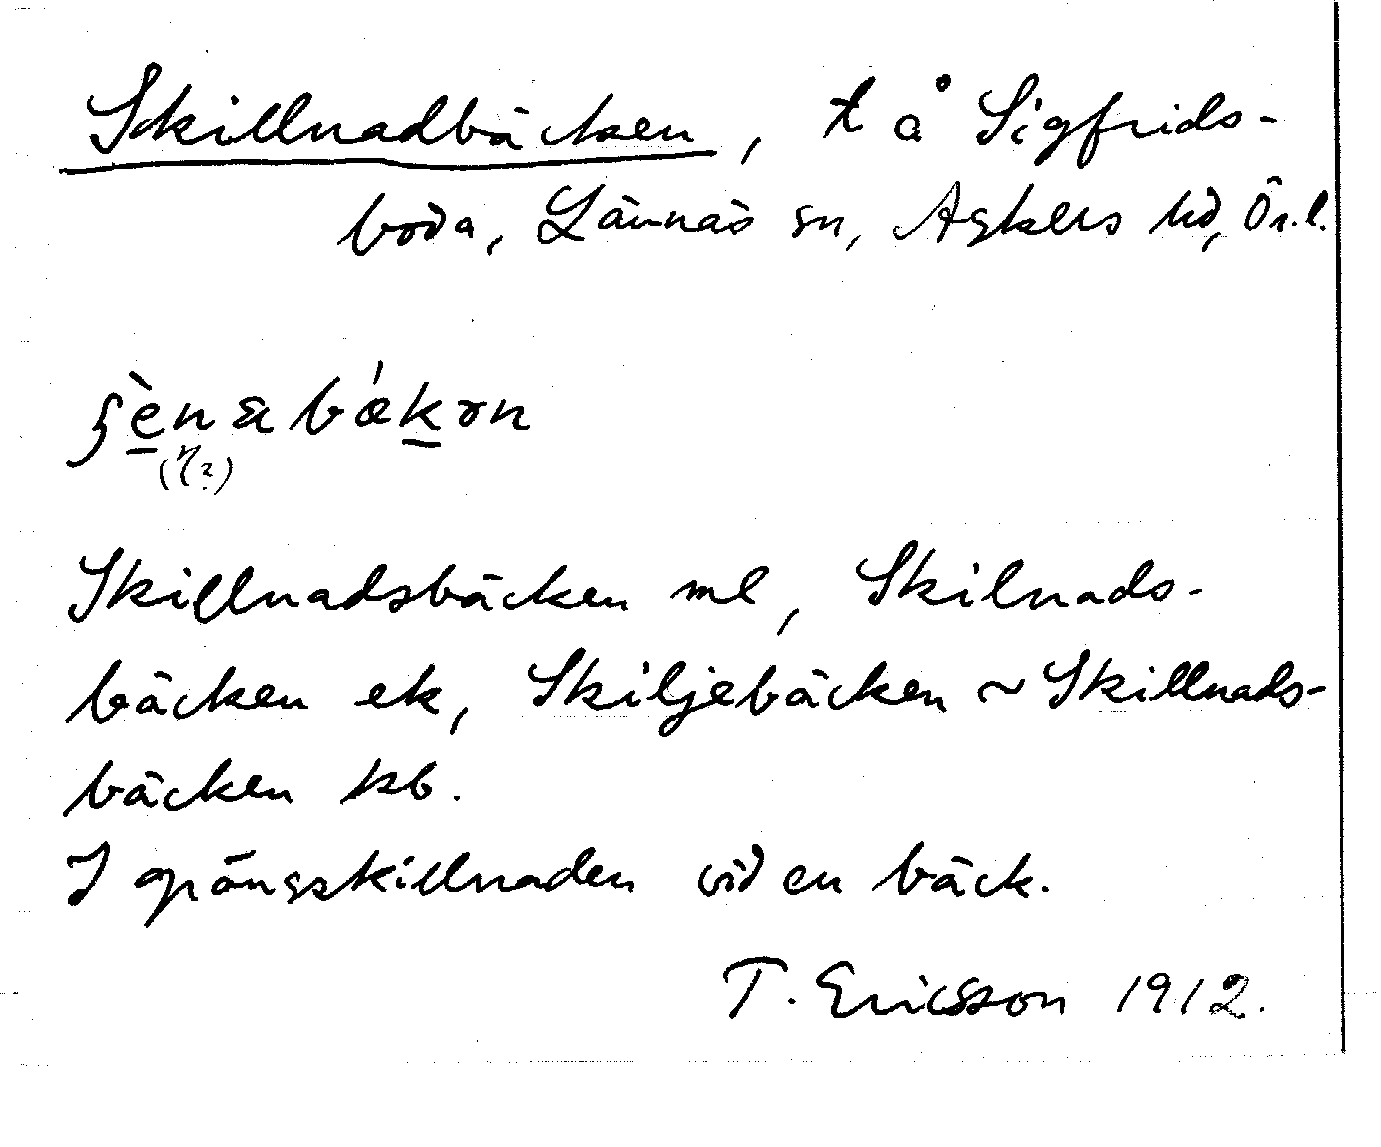 Skillnadbäcken, t å Sigfrids-
boda, Lännäs sn, Askers hd, Ör. l.
Skillnadsbäcken ml, Skilnads-
bäcken ek, Skiljebäcken ~ Skillnads-
bäcken kb.
I gränsskillnaden vid en bäck.
T. Ericsson 1912.